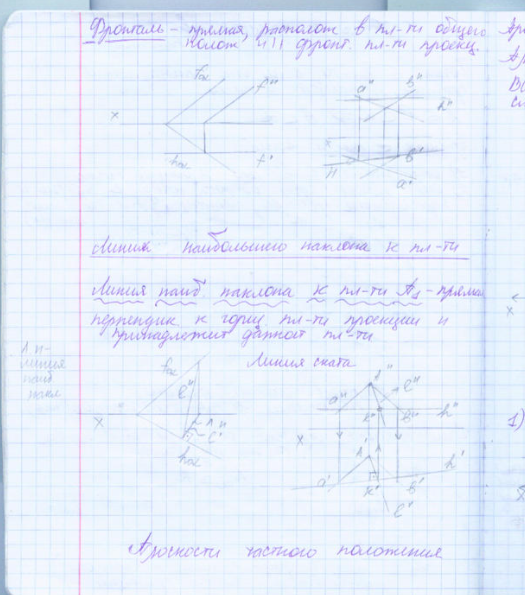 Фронталь – прямая, располож в пл-ти общего
полож и || фронт. пл-ти проекц.
x
f''
f'
a''
b''
h''
x
b'
a'
Линия наибольшего наклона к пл-ти
Линия наиб. наклона к пл-ти – прямая
перпендик к гориз пл-ти проекции и
принадлежит данной пл-ти.
Линия ската
линия
наиб
накл
x
l''
l'
A''
l''
a''
k''
b''
h''
x
A'
a'
k'
b'
h'
l'
1)
частного положения